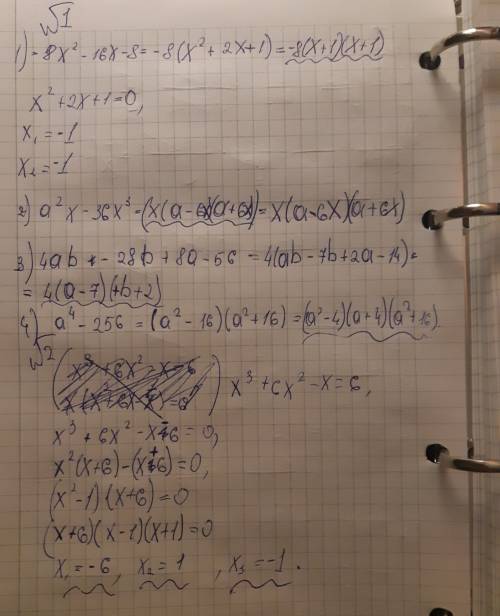 √1
1) -8x² - 16x - 8 = -8(x² + 2x + 1) = -8(x+1)(x+1)
x² + 2x + 1 = 0,
x₁ = -1
x₂ = -1
2) a²x - 36x³ = (x(a-6x)(a+6x) = x(a-6x)(a+6x)
3) 4ab - 28b + 8a - 56 = 4(ab - 7b + 2a - 14) =
= 4(a-7)(b+2)
4) a⁴ - 256 = (a² - 16)(a² + 16) = (a²-4)(a+4)(a²+16)
√2
x³ + 6x² - x = 6,
x³ + 6x² - x - 6 = 0,
x²(x+6) - (x+6) = 0,
(x² - 1)(x+6) = 0
(x+6)(x-1)(x+1) = 0
x₁ = -6, x₂ = 1, x₃ = -1.